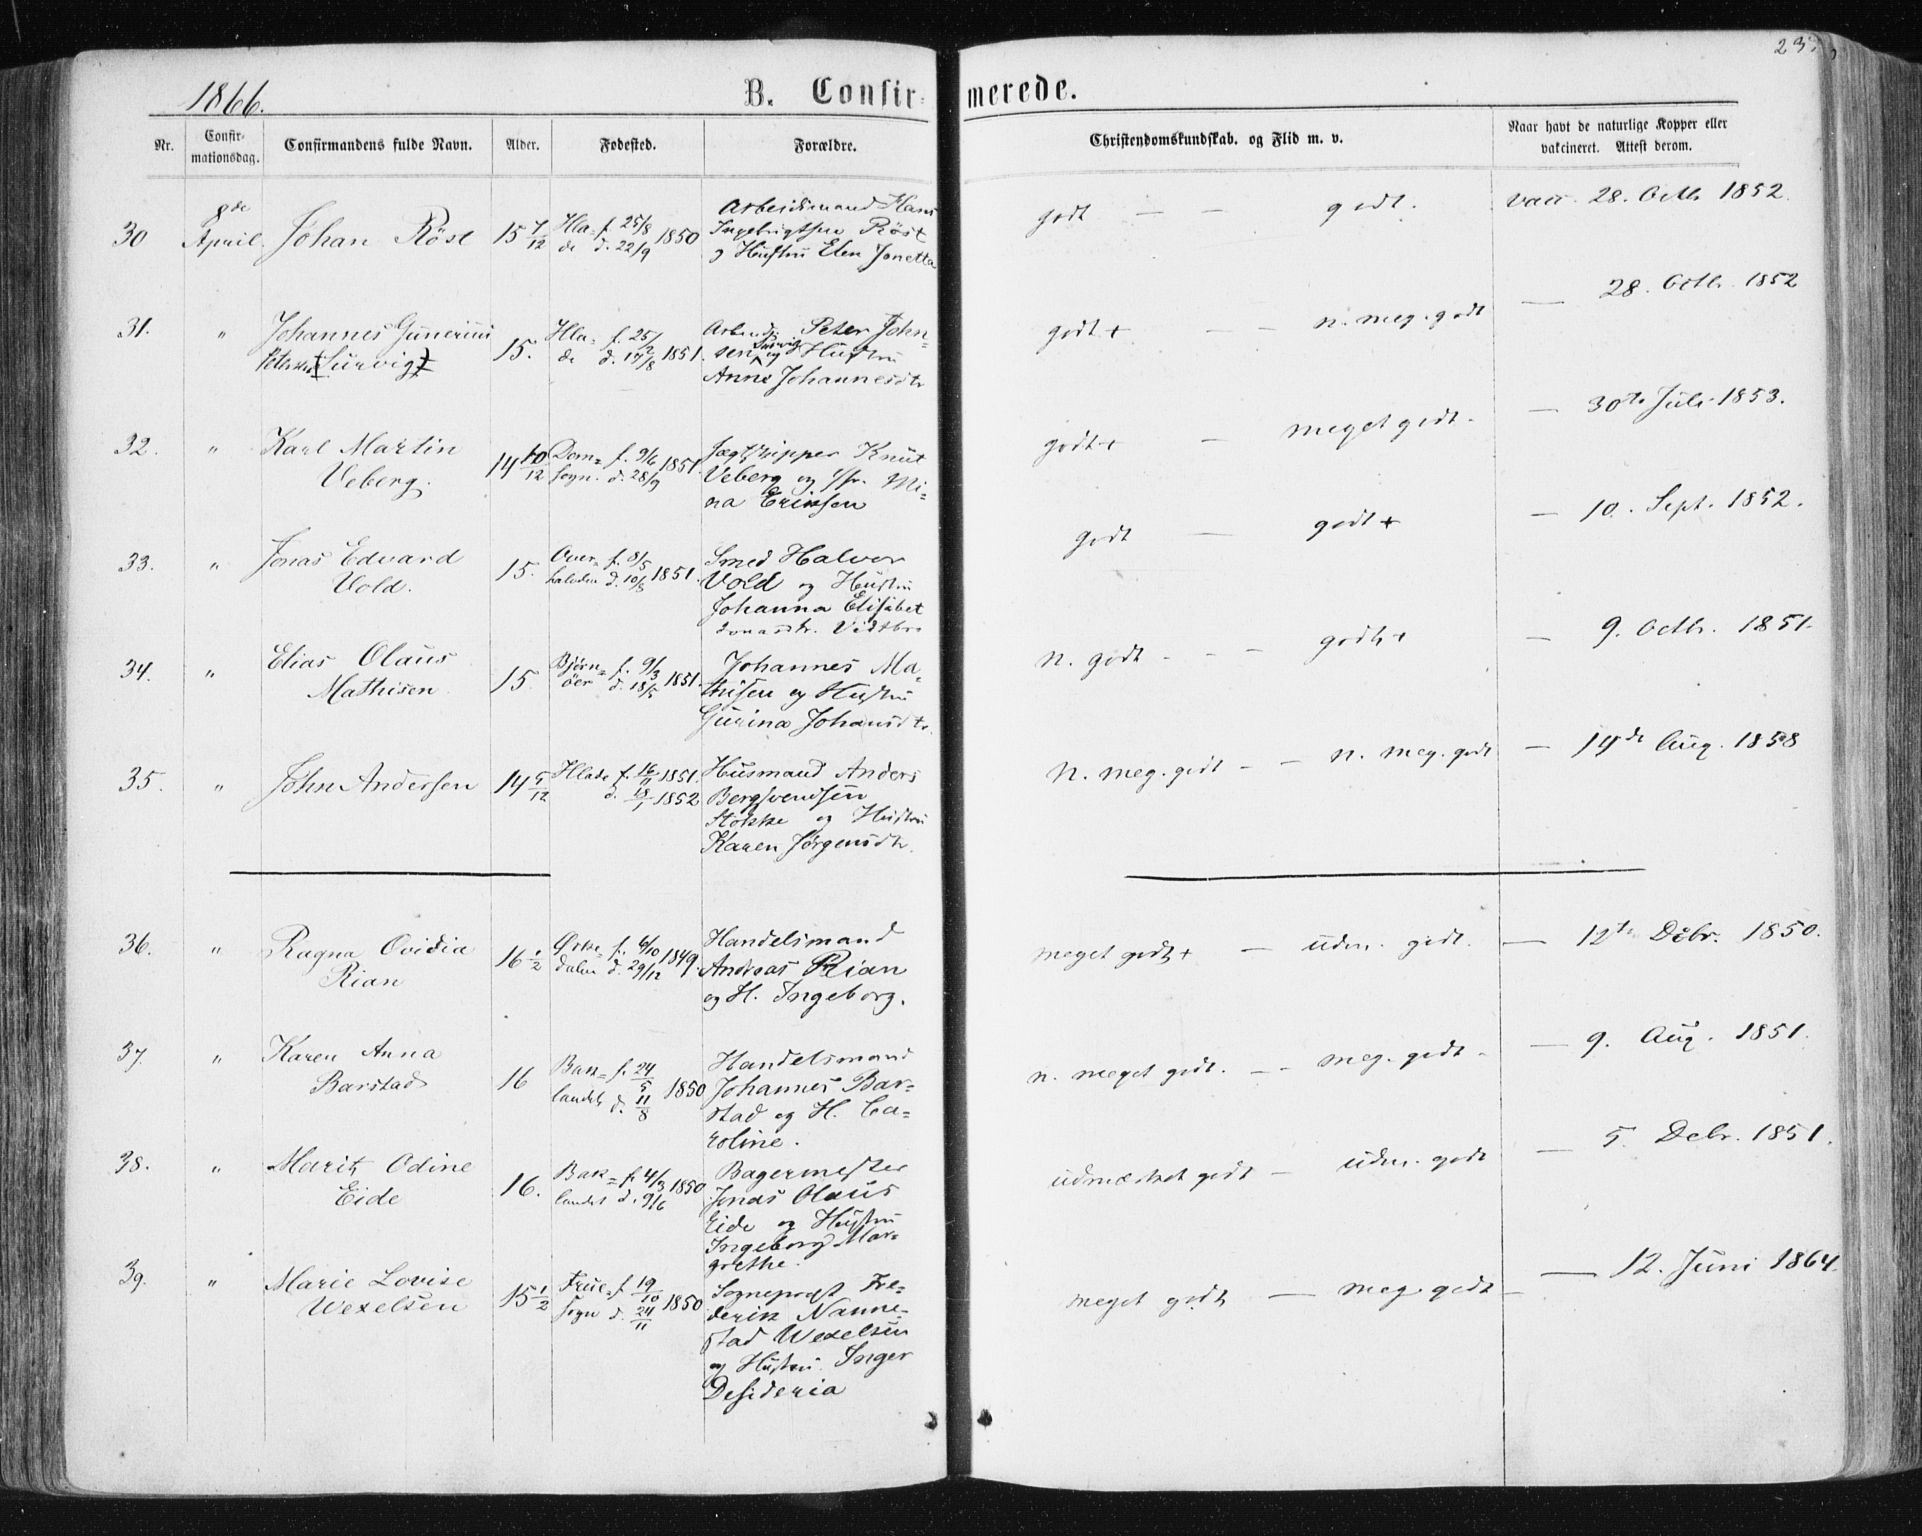 1866.
B. Confirmerede.
23
Nr.
Confirmationsdag.
Confirmandens fulde Navn.
Alder.
Fødested.
Forældre.
Christendomskundskab. og Flid m. v.
Naar havt de naturlige Kopper eller
vakcineret. Attest derom.
30 8de April. Johan Röst 15 7/12 Hlade f. 25/8 d. 22/9 1850
Arbeidsmand Hans
Ingebrigtsen Röst
og Hustru Elen Jonetta
godt — — godt. vacc. 28. Octb. 1852.
31. " Johannes Gunerius
Petersen (Survig) 15. Hlade f. 25/7 d. 17/8 1851.
Arbmd. Peter John-
sen Survig og Hustru
Anne Johannesdtr
godt + — — n. meg. godt — 28. Octb. 1852
32. " Karl Martin
Veberg. 14 10/12 Domsogn. f. 9/6 d. 28/9 1851.
Jægtskipper Knut
Veberg og Mi-
na Eriksen
godt + — meget godt. — 30te Juli 1853.
33. " Jonas Edvard
Vold. 15. Overhalvden f. 8/5 d. 10/8 1851.
Smed Halvor
Vold og Hustru
Johanna Elisabet
Jonasdtr.
godt — godt + — 10. Sept. 1852.
34. " Elias Olaus
Mathisen. 15. Bjørnöer f. 9/3 d. 18/5 1851.
Johannes Ma-
thisen og Hustru
Gurina Johansdtr.
n. godt — — godt + — 9. Octb. 1851.
35. " John Andersen 14 5/12 Hlade f. 16/11 1851. d. 18/1 1852
Husmand Anders
Bergsvendsen
Stokke og Hustru
Karen Jørgensdtr.
n. meg. godt — — n. meg. godt — 14de Aug. 1858
36. " Ragna Ovidia
Rian 16 1/2 Ørkedalen f. 6/10 d. 29/12 1849.
Handelsmand
Andreas Rian
og H. Ingeborg.
meget godt + — udm. godt. — 12te Debr. 1850.
37. " Karen Anna
Barstad 16 Baklandet f. 24/5 d. 11/8 1850
Handelsmand
Johannes Bar-
stad og H. Ca-
roline.
n. meget godt. — — meg. godt — — 9. Aug. 1851.
38. " Marith Odine
Eide 16. Baklandet f. 4/3 d. 9/6 1850
Bagermester
Jonas Olaus
Eide og Hustru
Ingeborg Mar-
grethe.
udmærket godt — udm. godt — 5. Debr. 1851.
39. " Marie Lovise
Wexelsen 15 1/2 Fruesogn f. 19/10 d. 24/11 1850
Sogneprest Fre-
derik Nanne-
stad Wexelsen
og Hustru Inger
Desideria
meget godt — meg. godt — — 12. Juni 1864.